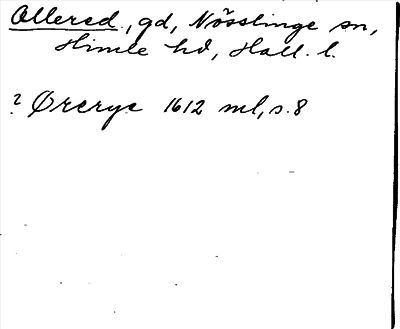 Allered, gd, Nösslinge sn,
Himle hd, Hall. l.
? Ørerye 1612 ml, s. 8